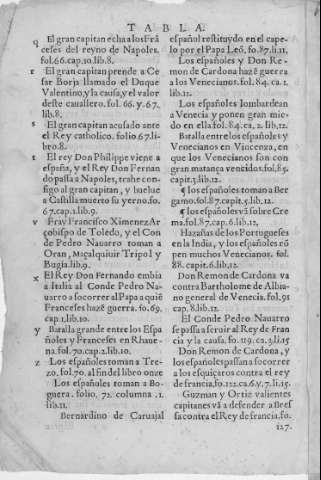 TABLA.
q El gran capitan echa a los Frã
ceses del reyno de Napoles.
fol.66.cap.10.lib.8.
r El gran capitan prende a Ce
sar Borja llamado el Duque
Valentino, y la causa, y el valor
deste cauallero. fol. 66. y. 67.
lib.8.
s El gran capitan acusado ante
el Rey catholico. folio 67.li
bro.8.
t El rey Don Philippe viene a
españa, y el Rey Don Fernan
do passa a Napoles, trahe con-
sigo al gran capitan, y buelue
a Castilla muerto su yerno. fo.
67.cap.1.lib.9.
v Fray Francisco Ximenez Ar
çobispo de Toledo, y el Con
de Pedro Nauarro toman a
Oran, Maçalquiuir Tripol y
Bugia.lib.9.
x El Rey Don Fernando embia
a Italia al Conde Pedro Naua
rro a socorrer al Papa a quiẽ
Franceses hazẽ guerra. fo.69.
cap.1.lib.10.
y Batalla grande entre los Espa
ñoles y Franceses en Rhaue-
na.fol.70.cap.2.lib.10.
z Los españoles toman a Tre-
zo.fol.70. al fin del libro onze
Los españoles toman a Bo-
guera. folio, 72. columna .1.
lib.11.
Bernardino de Caruajal
español restituydo en el cape-
lo por el Papa Leõ, fo.87.li.11.
Los españoles y Don Re-
mon de Cardona hazẽ guerra
a los Venecianos.fol.84. ca. 1.
lib.11.
Los españoles lombardean
a Venecia y ponen gran mie-
do en ella fol.84. ca. 2. lib.12.
Batalla entre los españoles y
Venecianos en Vincenza, en
que los Venecianos son con
gran matança vencidos.fol.85.
capit.5.lib.12.
¶ los españoles toman a Ber
gamo.fol.87.capit.5.lib.12.
¶ los españoles vã sobre Cre
ma.fol.87.capit.6.lib.12.
Hazañas de los Portugueses
en la India, y los españoles rõ
pen muchos Venecianos. fol.
88. capit.6.lib.12.
Don Remon de Cardona va
contra Bartholome de Albia-
no general de Venecia. fol.91
cap.8.lib.12.
El Conde Pedro Nauarro
se passa a seruir al Rey de Fran
cia y la causa. fo. 119. ca.9.li.15
Don Remon de Cardona, y
los españoles passan a socorrer
a los esquiçaros contra el rey
de francia.fo.122.ca.6.y.7.li.15.
Guzman y Ortiz valientes
capitanes vã a defender a Bres
sa contra el Rey de francia.fo.
127.